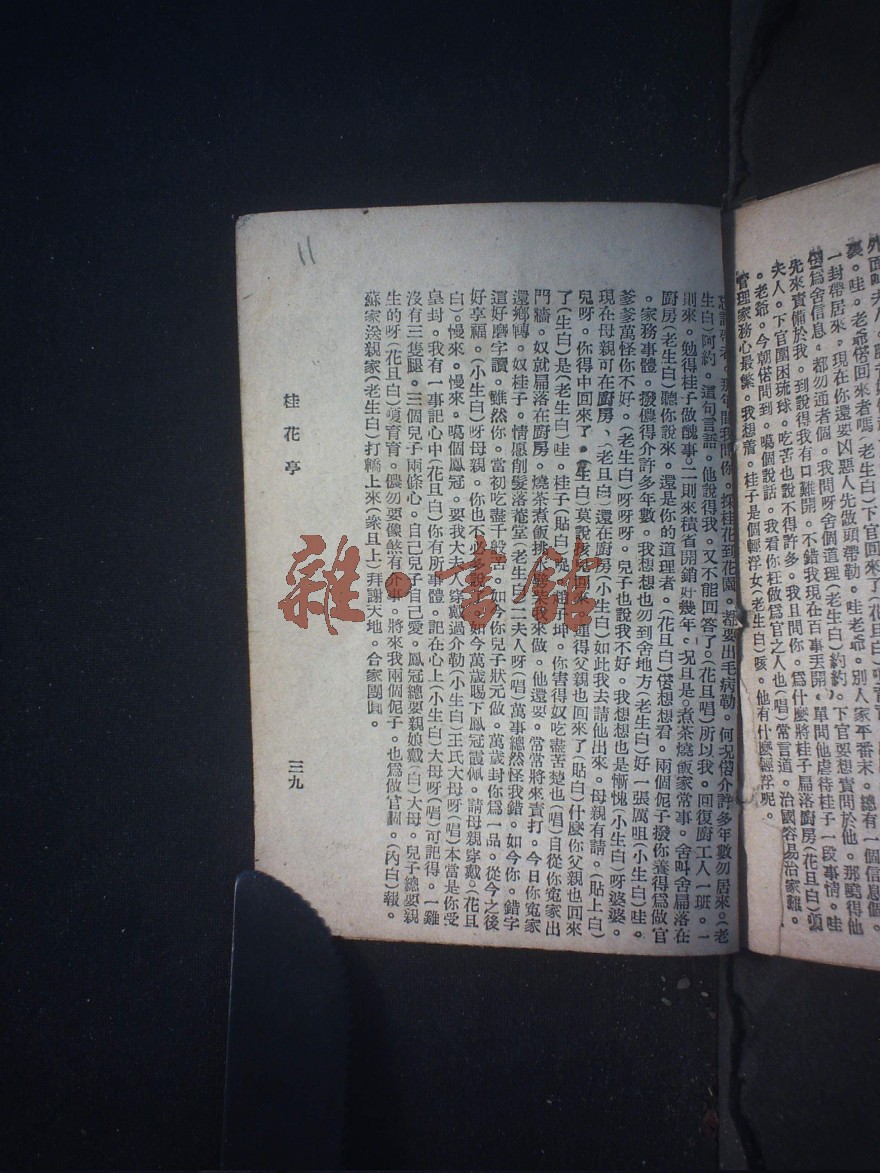 外面
裏。哇。老爺偌回來者嗎(老生白)下官回來了(花旦白)
一封帶居來。現在你還要凶惡人先做頭帶勒。哇老爺。別人家平番末。總有一個信息個。
爲舍信息。都勿通者個。我問呀舍個道理(老生白)約約。下官要想責問於他。那曉得他
先來責備於我。到說得我有口難開。不錯我現在百事丟開。單問他虐待桂子一段事情。哇
夫人。下官圍困琉球。吃苦也說不得許多。我且問你。爲什麼將桂子扁落廚房(花旦白)
。老爺。今朝偌問到。噶個說話。我看你枉做爲官之人也(唱)常言道。治國容易治家難。
管理家務心最繁。我想蕭。桂子是個輕浮女(老生白)咳。他有什麼輕浮呢。
那年間我問你。採桂花到花園。都要出毛病勒。何况偌介許多年數勿居來。(老
生白)阿約。這句言語。他說得我。又不能回答了。(花旦唱)所以我。回復廚工人一班。一
則來。勉得桂子做醜事。二則來積省開銷好幾年。况且是。煮茶燒飯家常事。舍叫舍扁落在
廚房(老生白)聽你說來。還是你的道理者。(花旦白)偌想想看。兩個伲子撥你養得爲做官
。家務事體。撥儂得介許多年數。我想想也勿到舍地方(老生白)好一張厲咀(小生白)哇。
爹爹萬怪你不好。(老生白)呀呀呀。兒子也說我不好。我想想也是慚愧(小生白)呀婆婆。
現在母親可在廚房、(老旦白)還在廚房(小生白)如此我去請他出來。母親有請。(貼上白)
兒呀。你得中回來了。(生白)莫說孩兒回來。連得父親也回來了(貼白)什麼你父親也回來
了(生白)是(老生白)哇。桂子(貼白)趙子坤。你害得奴吃盡苦楚也(唱)自從你寃家出
門牆。奴就扁落在廚房。燒茶煮飯排水要我來做。他還要。常常將來責打。今日你寃家
還鄉轉。奴桂子。情愿削髮落菴堂(老生白)二夫人呀(唱)萬事總然怪我錯。如今你。錯字
這好磨字讀。雖然你。當初吃盡千般苦。如今你兒子狀元做。萬歲封你爲一品。從今之後
好享福。(小生白)呀母親。你也不必多說。如今萬歲賜下鳳冠霞佩。請母親穿戴。(花旦
白)。慢來。慢來。噶個鳳冠。要我大夫人穿戴過介勒(小生白)王氏大母呀(唱)本當是你受
皇封。我有一事記心中(花旦白)你有所事體。記在心上(小生白)大母呀(唱)可記得。一雞
沒有三隻腿。三個兒子兩條心。自己兒子自己愛。鳳冠總要親娘戴(白)大母。兒子總要親
生的呀(花旦白)育育。儂勿要像煞有介事。將來我兩個伲子。也爲做官個。(內白)報。
蘇家送親家(老生白)打轎上來(衆旦上)拜謝天地。合家團圓。
桂花亭
三九
11
雜·書館